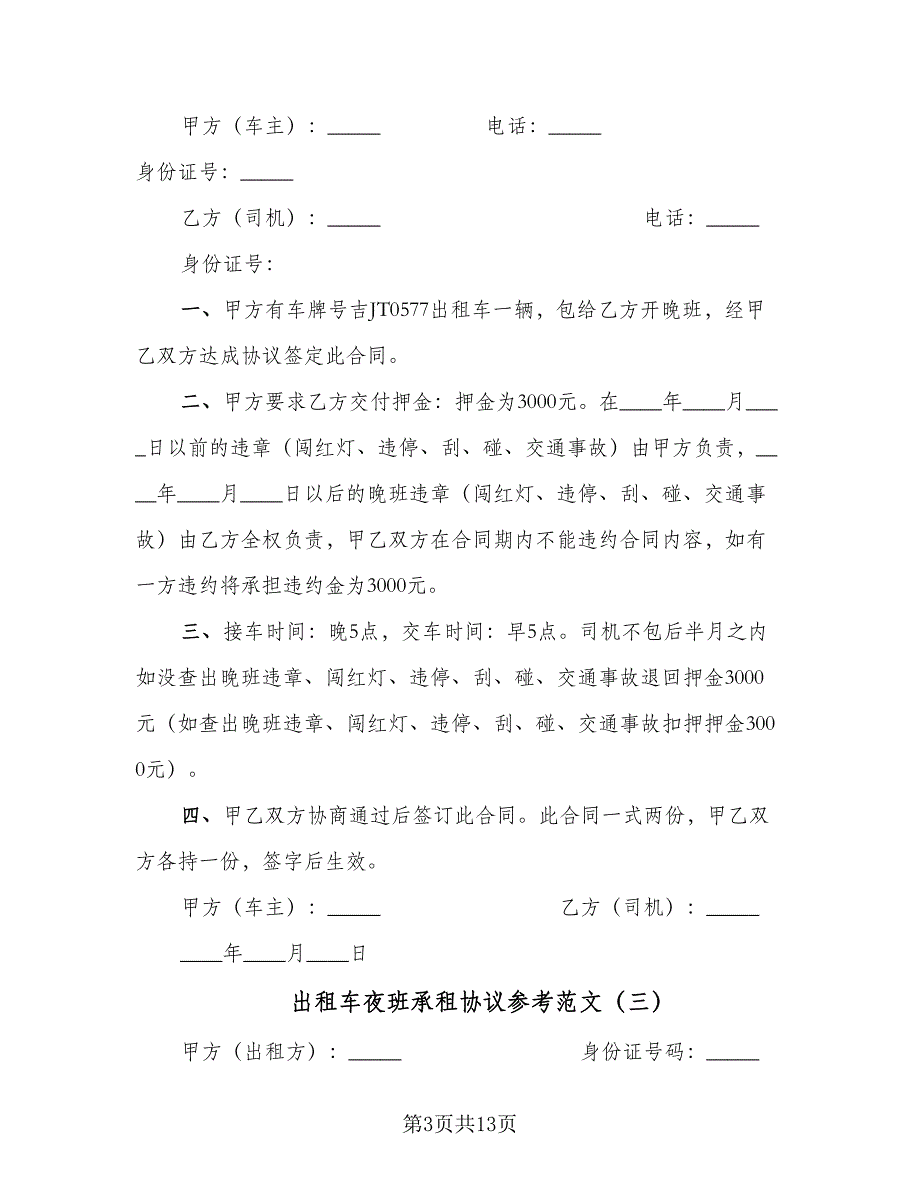 甲方（车主）：_____ 电话：_____
身份证号：_____
乙方（司机）：_____ 电话：_____
身份证号：
一、甲方有车牌号吉JT0577出租车一辆，包给乙方开晚班，经甲
乙双方达成协议签定此合同。
二、甲方要求乙方交付押金：押金为3000元。在____年____月___
_日以前的违章（闯红灯、违停、刮、碰、交通事故）由甲方负责，__
__年____月____日以后的晚班违章（闯红灯、违停、刮、碰、交通事
故）由乙方全权负责，甲乙双方在合同期内不能违约合同内容，如有
一方违约将承担违约金为3000元。
三、接车时间：晚5点，交车时间：早5点。司机不包后半月之内
如没查出晚班违章、闯红灯、违停、刮、碰、交通事故退回押金3000
元（如查出晚班违章、闯红灯、违停、刮、碰、交通事故扣押押金300
0元）。
四、甲乙双方协商通过后签订此合同。此合同一式两份，甲乙双
方各持一份，签字后生效。
甲方（车主）：_____ 乙方（司机）：_____
____年____月____日
出租车夜班承租协议参考范文（三）
甲方（出租方）：_____ 身份证号码：_____
第3页共13页